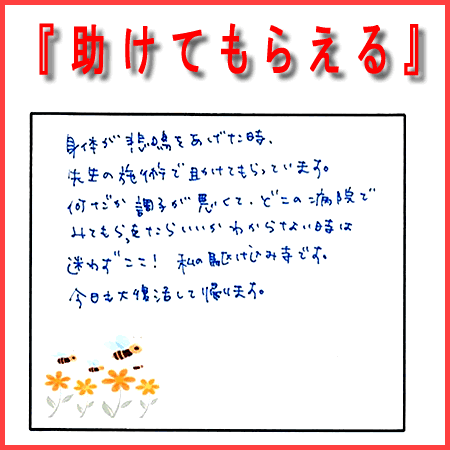 『助けてもらえる』
身体が悲鳴をあげた時、
先生の施術で助けてもらっています。
何だか調子が悪くて、どこの病院で
みてもらったらいいかわからない時は
迷わずここ！ 私の駆けこみ寺です。
今日も大復活して帰ります。